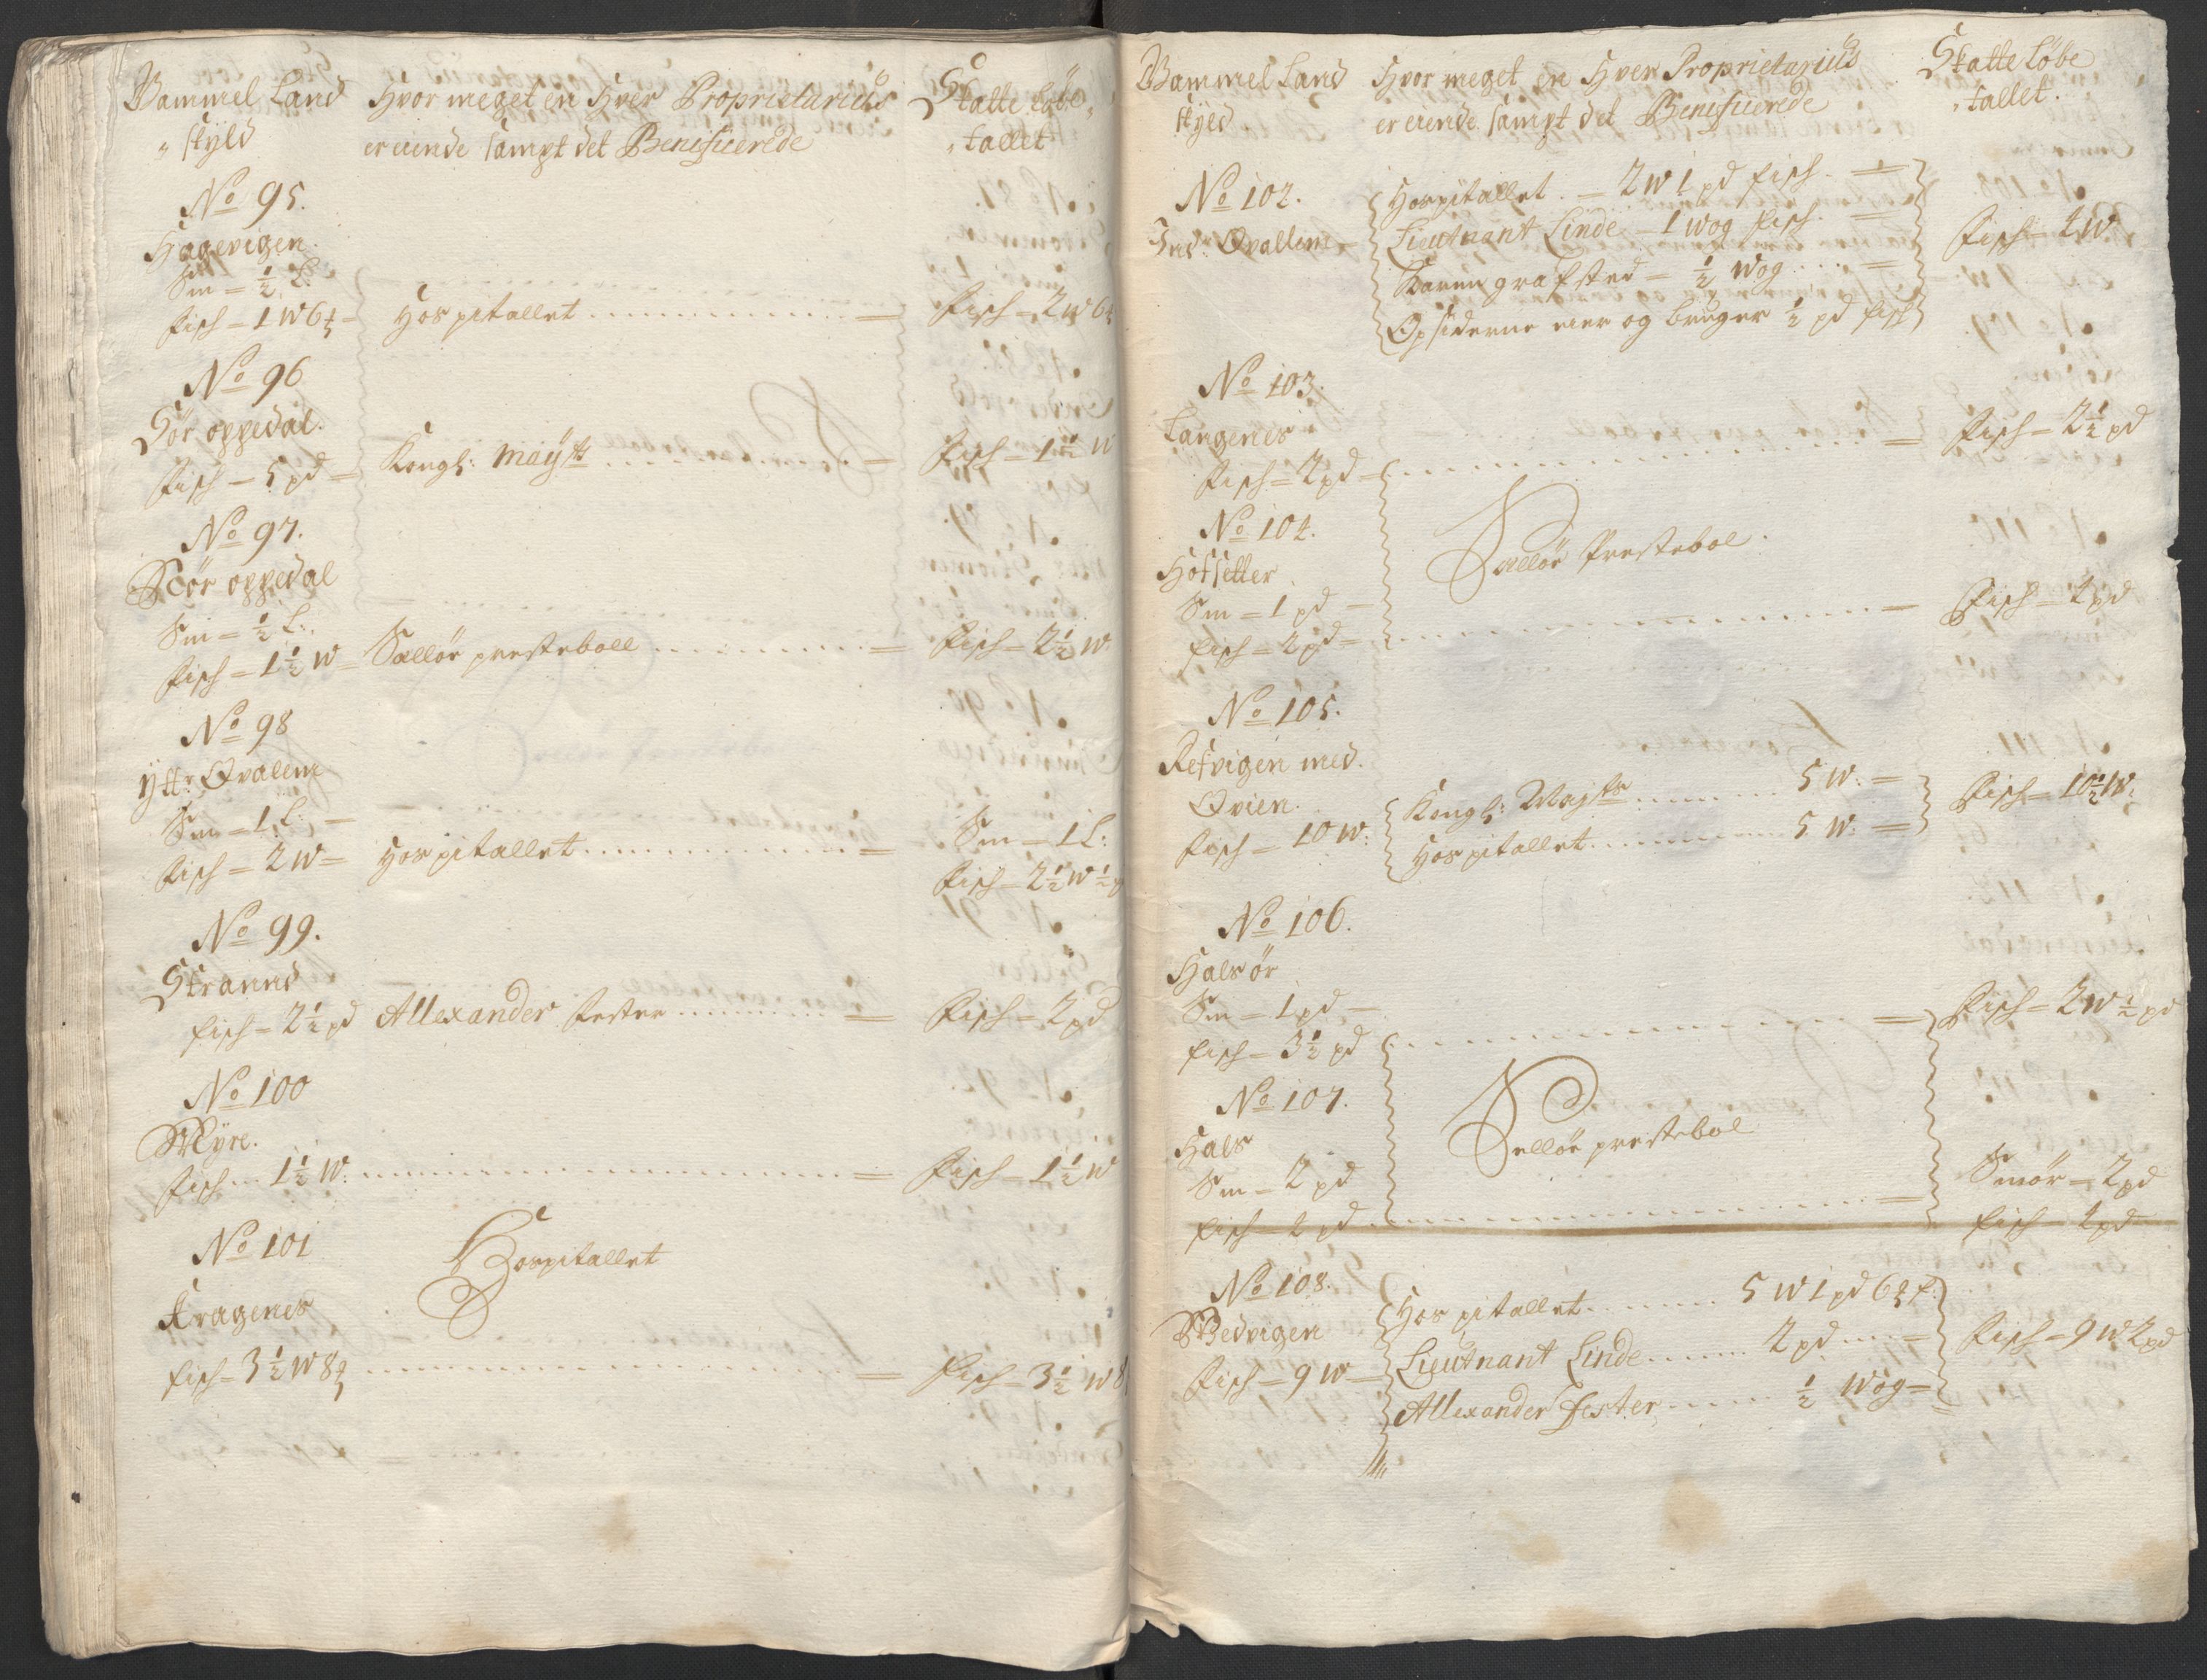 Gammel Land
„ skyld
Hvor meget en Hver Proprietarius
er eiende sampt det Benificerede
Skatte Løbe„
„ tallet
No 95.
Hagevigen.
Sm = ½ L:
fisch = 1 W 6
Hospitallet = fisch = 2 W 6
No 96
Sør oppedal.
fisch = 5 pd = Kongl: Mayst = fisch = 1½ W
No 97.
Nør oppedal
Sm = ½ L:
fisch = 1½ W = Sælløe præsteboll = fisch = 2½ W
No 98
Ytt: Qvalen
Sm = 1 L: =
fisch = 2 W = Hospitallet = Sm = 1 L:
fisch = 2½ W ½
No 99.
Strannd
fisch = 2½ pd Allexander fester = fisch = 2 pd
No 100
Myre.
fisch 1½ W: = fisch = 1½ W
No 101
Hospitallet
Kragenes
fisch = 3½ W 8 = fisch = 3½ W 8
Gammel Land
skyld
Hvor meget en Hver Proprietarius
er eiende sampt det Benificerede
Skatte Løbe
„ tallet.
No 102.
Ind: Qvallen =
Hospitallet. = 2 W 1 pd fisch. =
Lieutnant Linde = 1 Wog fisch. =
Karen grafsted = ½ Wog =
Opsiderne eier og bruger ½ pd fisch
fisch = 4 W
No 103.
Langenes
fisch = 2 pd = = fisch = 2½ pd
No 104.
Hofsetter
Sælløe Præstebol.
Sm = 1 pd =
fisch = 2 pd = = fisch = 2 pd
No 105.
Refvigen med.
Qvien.
fisch = 10 W:
Kongl: Mayts 5 W: =
Hospitallet 5 W: =
fisch = 10½ W:
No 106.
Halsør
Sm = 1 pd =
fisch = 3½ pd = fisch = 2 W ½ pd
No 107.
Hals
Sælløe præstebol
Sm = 2 pd
fisch = 2 pd =
Smør = 2 pd
fisch = 2 pd
No 108.
Wedvigen
fisch = 9 W =
Hospitallet 5 W 1 pd 6 f:
Lieutnant Linde 2 pd =
Allexander fester ½ Wog =
fisch = 9 W 2 pd